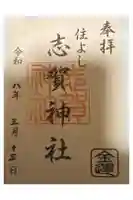 奉拝
住よし
志賀神社
令和八年 五月十三日
金運